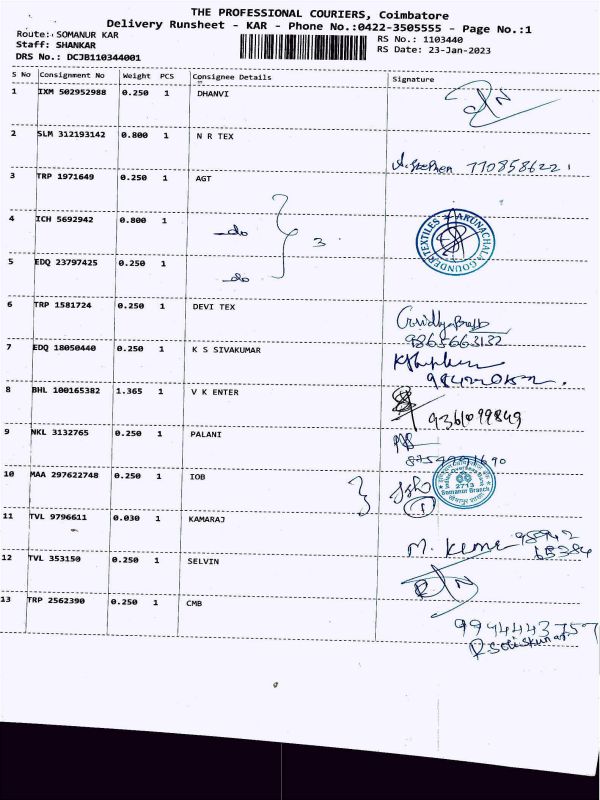 THE PROFESSIONAL COURIERS, Coimbatore
Delivery Runsheet - KAR - Phone No.:0422-3505555 - Page No.:1
Route: SOMANUR KAR
Staff: SHANKAR
DRS No.: DCJB110344001
RS No.: 1103440
RS Date: 23-Jan-2023
S No Consignment No Weight PCS Consignee Details Signature
1 IXM 502952988 0.250 1 DHANVI
2 SLM 312193142 0.800 1 N R TEX
3 TRP 1971649 0.250 1 AGT
4 ICH 5692942 0.800 1 -do 3
ARUNACHALA GOUNDER TEXTILES
5 EDQ 23797425 0.250 1 -do
6 TRP 1581724 0.250 1 DEVI TEX
9865663132
7 EDQ 18050440 0.250 1 K S SIVAKUMAR
8 BHL 100165382 1.365 1 V K ENTER
9361099849
9 NKL 3132765 0.250 1 PALANI
10 MAA 297622748 0.250 1 IOB
2713
Somanur Branch
1
11 TVL 9796611 0.030 1 KAMARAJ
12 TVL 353150 0.250 1 SELVIN
13 TRP 2562390 0.250 1 CMB
9944443757